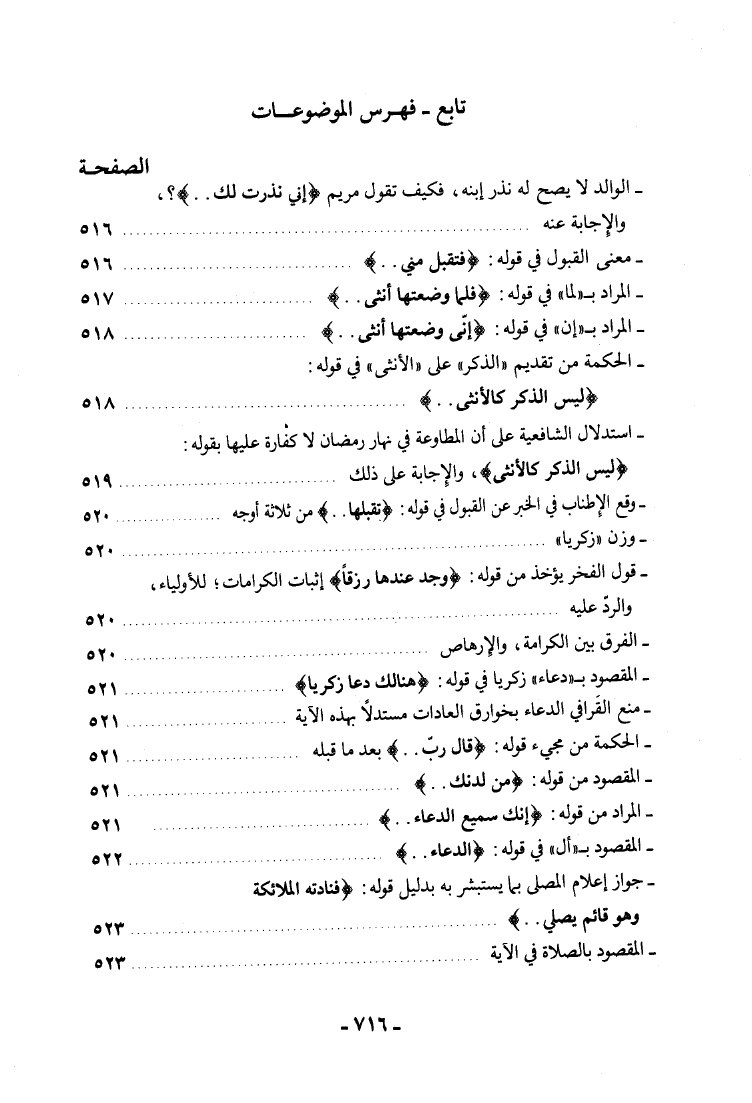 تابع ـ فهـرس الموضوعـــات
الصفحـة
ـ الوالد لا يصح له نذر إبنه، فكيف تقول مريم ﴿إني نذرت لك . . ﴾؟،
والإجابة عنه .......... ٥١٦
ـ معنى القبول في قوله : ﴿فتقبل مني . . ﴾ .......... ٥١٦
ـ المراد بـ«لما» في قوله : ﴿فلما وضعتها أنثى . . ﴾ .......... ٥١٧
ـ المراد بـ«إن» في قوله : ﴿إنّى وضعتها أنثى . . ﴾ .......... ٥١٨
ـ الحكمة من تقديم «الذكر» على «الأنثى» في قوله :
﴿ليس الذكر كالأنثى . . ﴾ .......... ٥١٨
ـ استدلال الشافعية على أن المطاوعة في نهار رمضان لا كفّارة عليها بقوله :
﴿ليس الذكر كالأنثى﴾، والإجابة على ذلك .......... ٥١٩
ـ وقع الإطناب في الخبر عن القبول في قوله : ﴿تقبلها . . ﴾ من ثلاثة أوجه .......... ٥٢٠
ـ وزن «زكريا» .......... ٥٢٠
ـ قول الفخر يؤخذ من قوله : ﴿وجد عندها رزقاً﴾ إثبات الكرامات؛ للأولياء،
والردّ عليه .......... ٥٢٠
ـ الفرق بين الكرامة، والإرهاص .......... ٥٢٠
ـ المقصود بـ«دعاء» زكريا في قوله : ﴿هنالك دعا زكريا﴾ .......... ٥٢١
ـ منع القَرافي الدعاء بخوارق العادات مستدلاً بهذه الآية .......... ٥٢١
ـ الحكمة من مجيء قوله : ﴿قال ربّ . . ﴾ بعد ما قبله .......... ٥٢١
ـ المقصود من قوله : ﴿من لدنك . . ﴾ .......... ٥٢١
ـ المراد من قوله : ﴿إنك سميع الدعاء . . ﴾ .......... ٥٢١
ـ المقصود بـ«أل» في قوله : ﴿الدعاء . . ﴾ .......... ٥٢٢
ـ جواز إعلام المصلى بما يستبشر به بدليل قوله : ﴿فنادته الملائكة
وهو قائم يصلي . . ﴾ .......... ٥٢٣
ـ المقصود بالصلاة في الآية .......... ٥٢٣
ـ ٧١٦ ـ